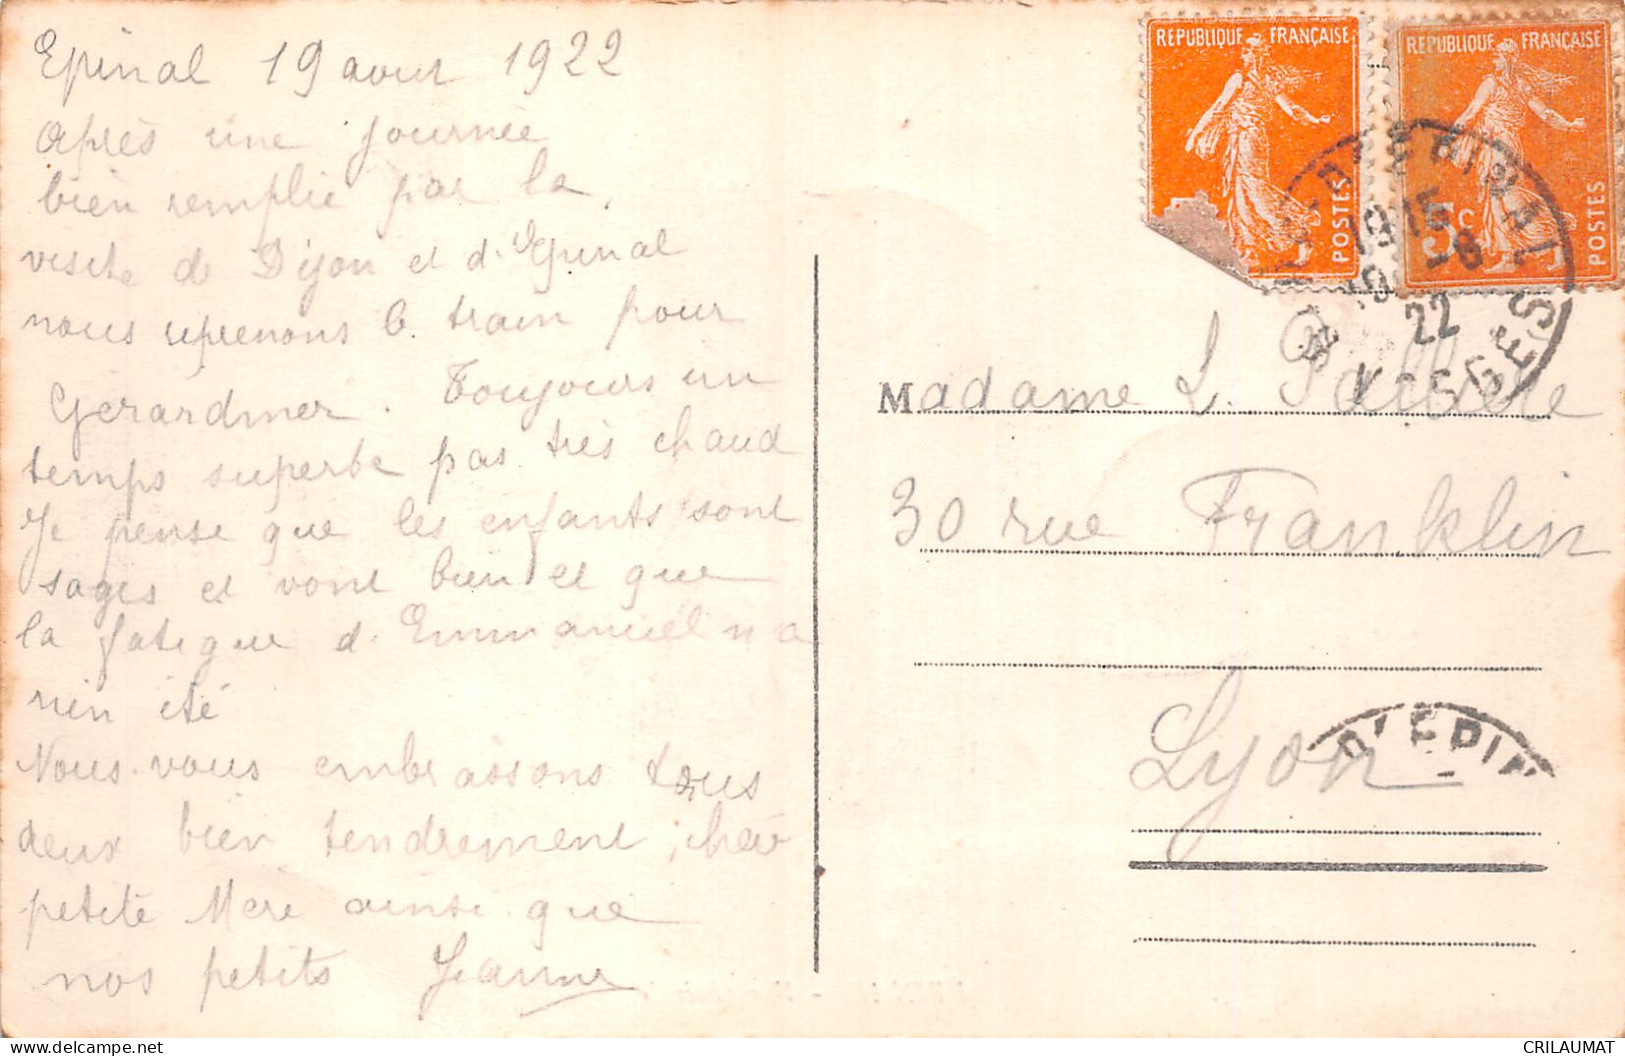 Epinal 19 aout 1922
Après une journée
bien remplie par la
visite de Dijon et d'Epinal
nous reprenons le train pour
Gerardmer. Toujours un
temps superbe pas très chaud
Je pense que les enfants sont
sages et vont bien et que
la fatigue d'Emmanuel n'a
rien été
Nous vous embrassons tous
deux bien tendrement, chère
petite Mère ainsi que
nos petits Jeanne
REPUBLIQUE FRANÇAISE
POSTES
REPUBLIQUE FRANÇAISE
5c
POSTES
D'EPINAL
19 15
19 -8
22
VOSGES
Madame L.
30 rue Franklin
Lyon
D'EPIN
CRILAUMAT